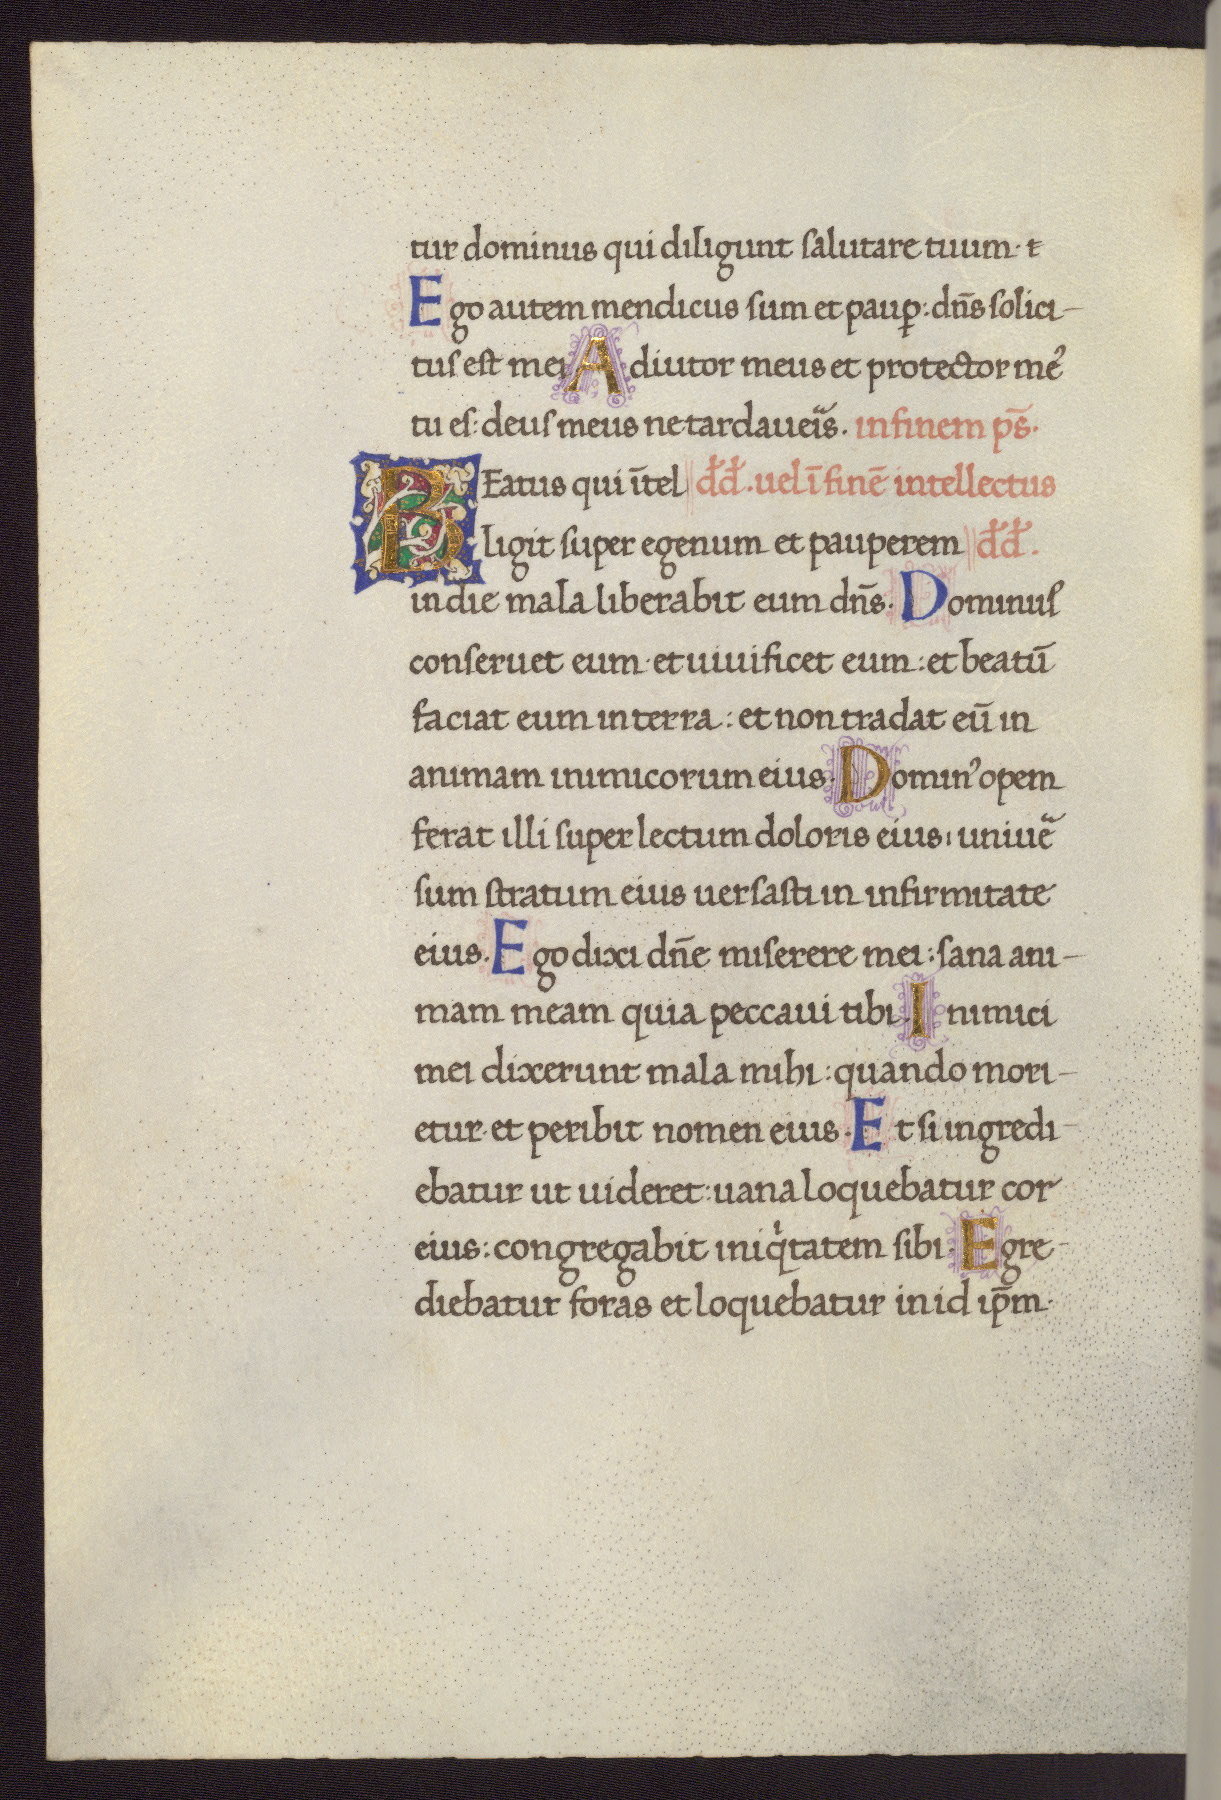 tur dominus qui diligunt salutare tuum· t
Ego autem mendicus sum et paup̱: dn̄s solici-
tus est mei Adiutor meus et protector meꝰ
tu es: deus meus ne tardaueis̃. in finem ps̄.
Beatus qui ītel dd. uel ī finē intellectus
ligit super egenum et pauperem dd.
in die mala liberabit eum dn̄s. Dominus
conseruet eum· et uiuificet eum: et beatū
faciat eum in terra: et non tradat eū in
animam inimicorum eius. Dominꝰ opem
ferat illi super lectum doloris eius: uniuẽ
sum stratum eius uersasti in infirmitate
eius. Ego dixi dn̄e miserere mei: sana ani-
mam meam quia peccaui tibi. Inimici
mei dixerunt mala mihi: quando mori-
etur· et peribit nomen eius. Et si ingredi
ebatur ut uideret: uana loquebatur cor
eius: congregabit iniqͥtatem sibi. Egre-
diebatur foras et loquebatur in id ip̄m·